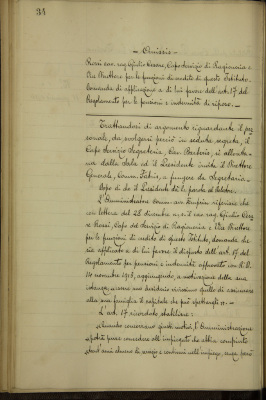 34
- Omissis -
Rossi cav. rag. Egidio Cesare, Capo Servizio di Ragioneria e
per le funzioni di credito di questo Istituto.
Domanda di applicazione a di lui favore dell'art. 17 del
Regolamento per le pensioni e indennità di riposo. -
Trattandosi di argomento riguardante il per
sonale, da svolgersi perciò in seduta segreta, il
Capo Servizio Segreteria, Cav. si allonta-
na dalla Sala ed il Presidente invita il Direttore
Generale, Comm. a fungere da Segretario. -
Dopo di che il Presidente dà la parola al
L'Amministratore Comm. avv. riferisce che
con lettera del 28 dicembre u. s. il cav. rag. Egidio Cesa
re Rossi, Capo del Servizio di Ragioneria e
per le funzioni di credito di questo Istituto, domanda che
sia applicato a di lui favore il disposto dell'art. 17 del
Regolamento per pensioni e indennità approvato con R. D.
14 novembre 1918, aggiungendo, a motivazione della sua
istanza, essere suo desiderio vivissimo quello di assicurare
alla sua famiglia il capitale che può spettargli ". -
L'art. 17 ricordato stabilisce:
"Quando concorrano giusti motivi, l'Amministrazione
"potrà pure concedere all'impiegato che abbia compiuto
anni di servizio e continui nell'impiego,